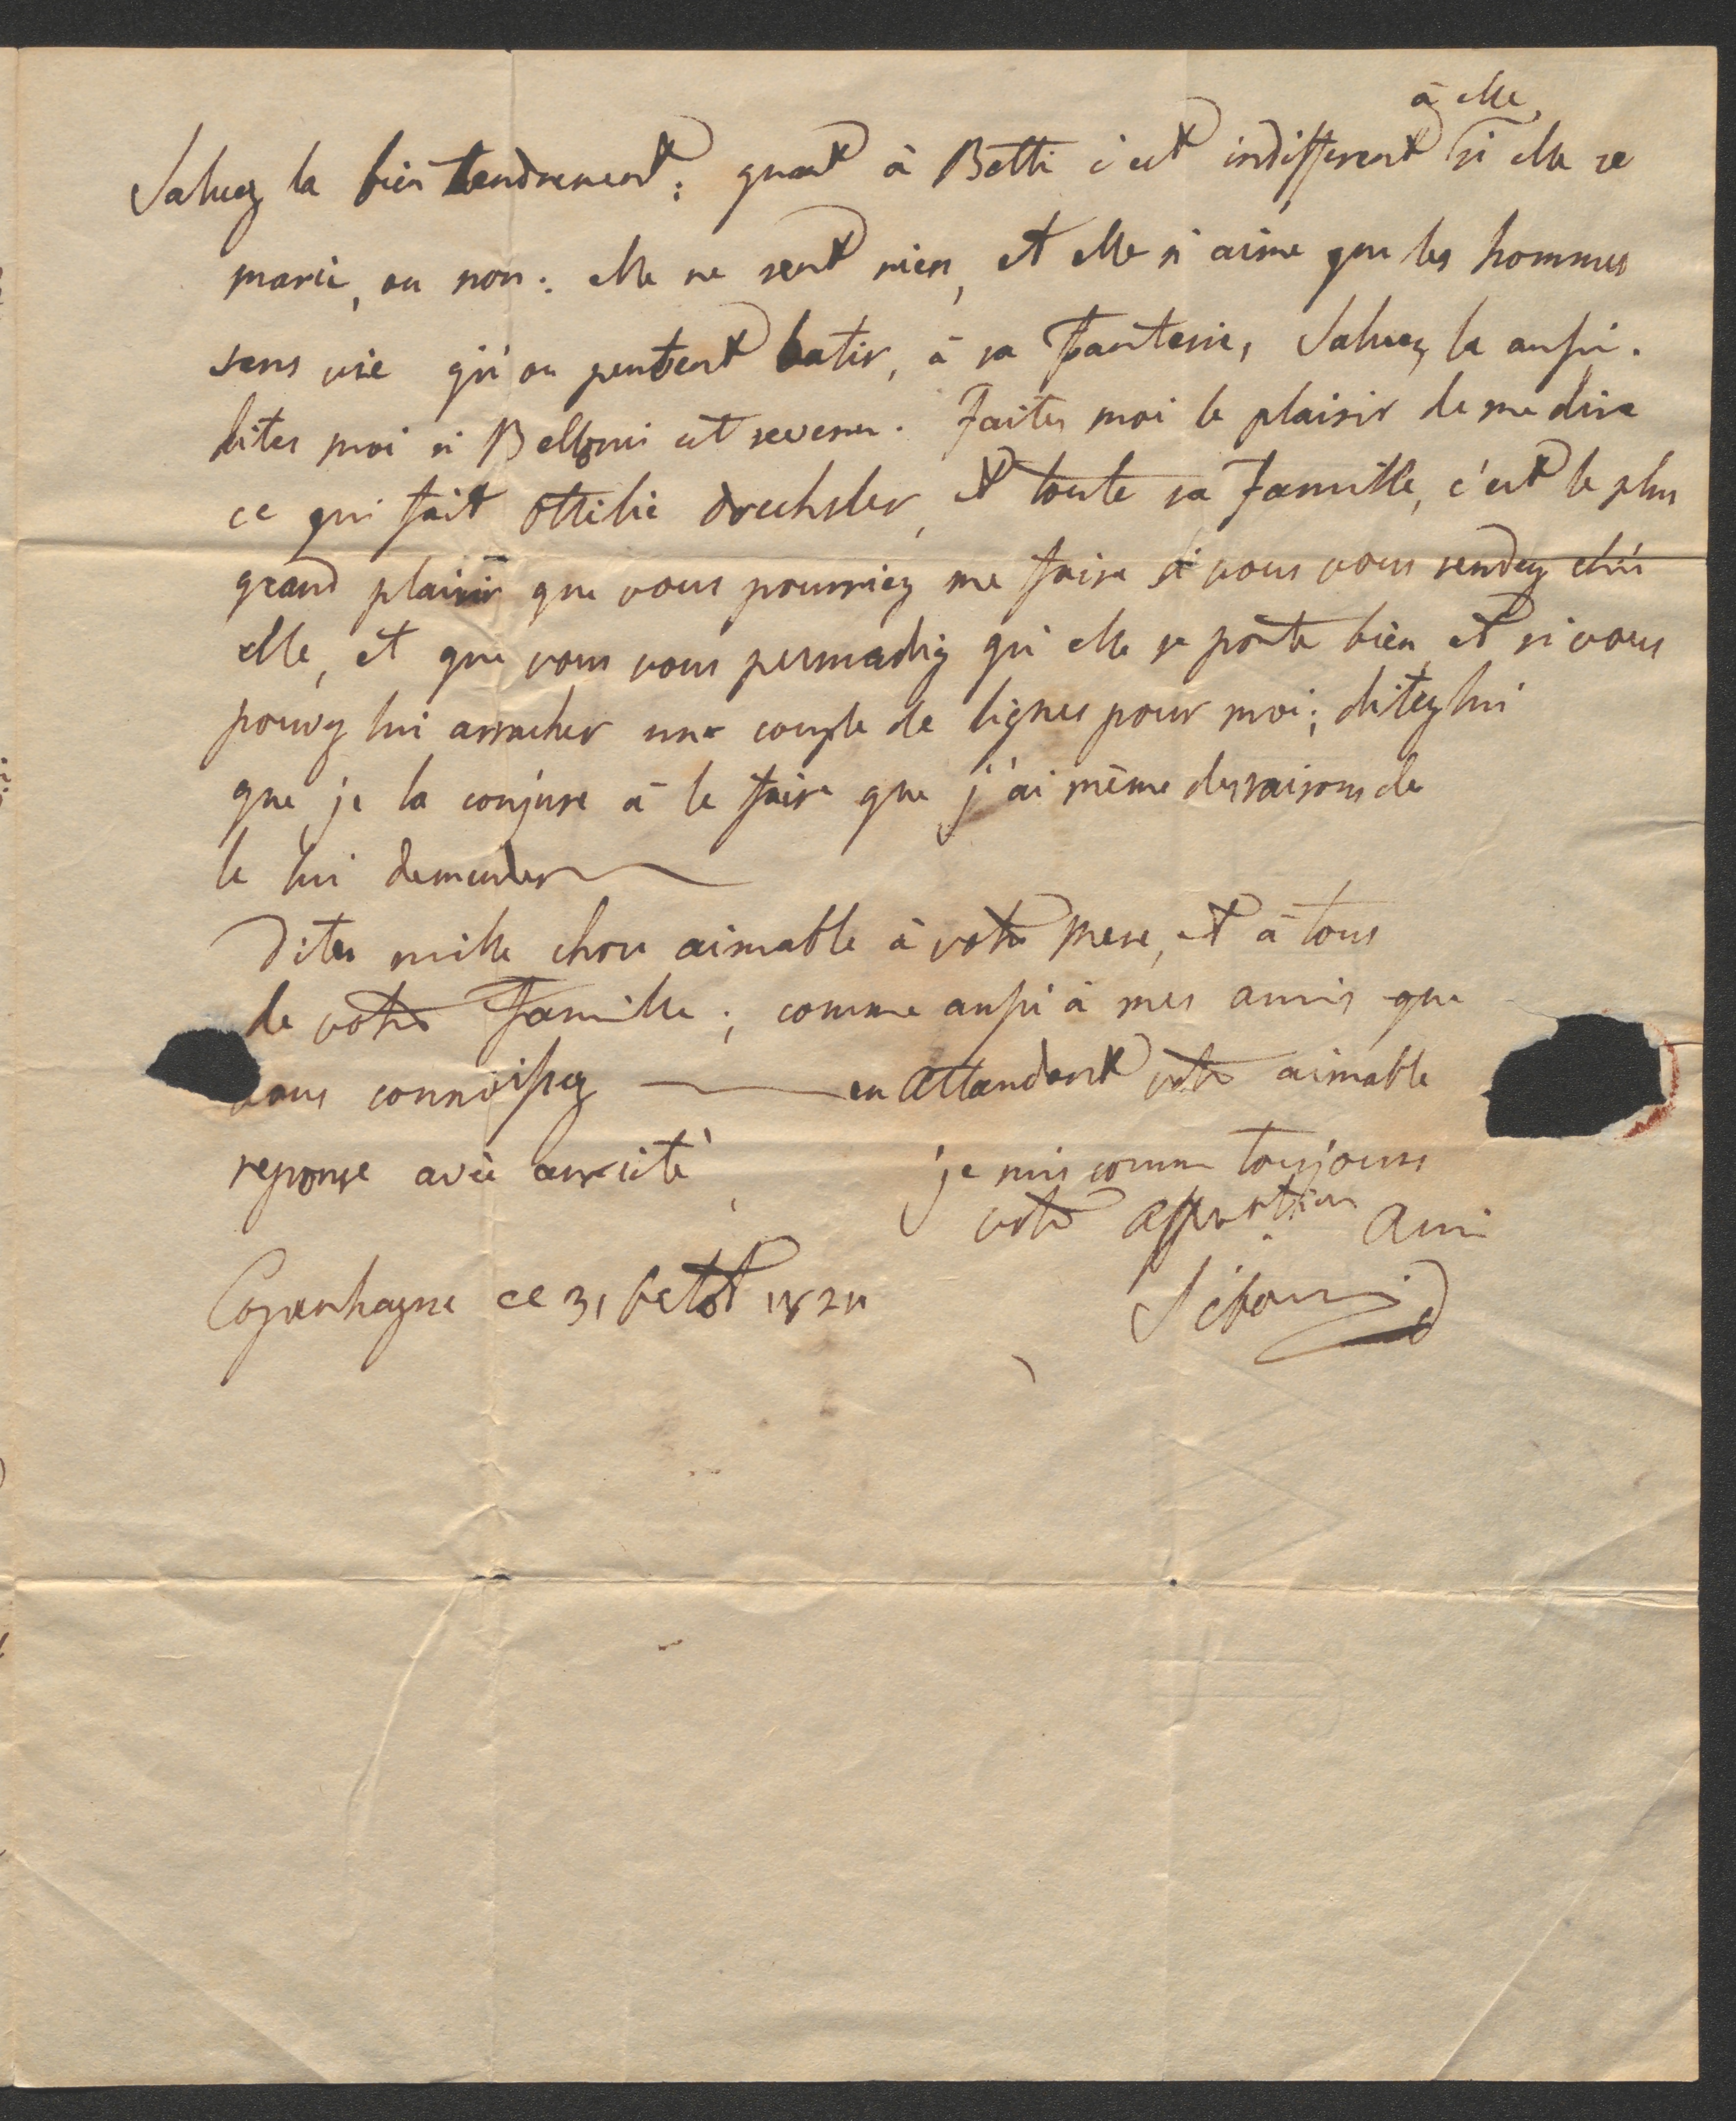 à elle,
Saluez la bien tendrement: quant à Betti c'est indifferent si elle se
marie, ou non: elle ne sent rien, et elle n'aime que les hommes
sens vie qu'on peutent batir, à sa Fantesie, Saluez la aussi.
dites moi si Bellonni est revenu. Faites moi le plaisir de me dire
ce qui fait Ottilie Drechsler, et toute sa Famille, c'est le plus
grand plaisir que vous pourriez me faire si vous vous rendez chés
elle, et que vous vous persuadiez qu'elle se porte bien, et si vous
pouvez lui arracher une couple de lignes pour moi; ditez lui
que je la conjure à le faire que j'ai même des raisons de
le lui demander
Dites mille chose aimable à votre Mere, et à tous
de votre Famille; comme aussi à mes amis que
vous connoissez en attendant votre aimable
reponse avec anxieté, je suis comme toujours
votre Ami
Copenhague ce 31 Octob 182
Siboni